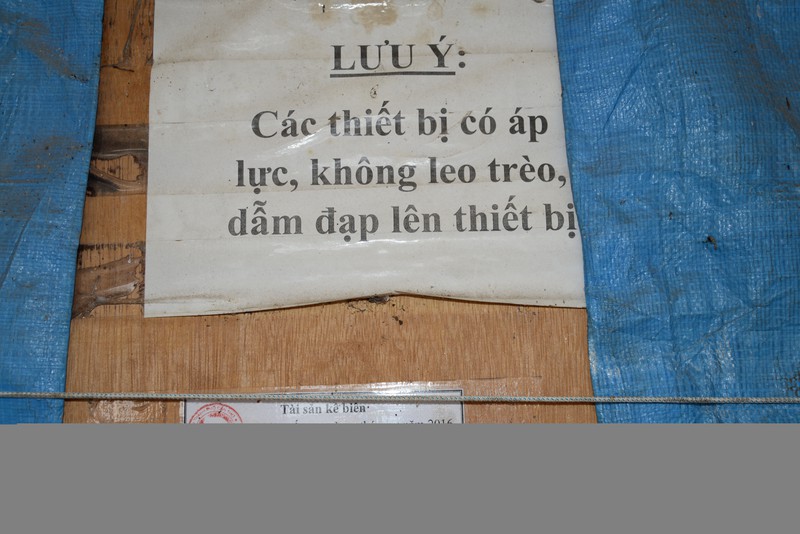 LƯU Ý:
Các thiết bị có áp
lực, không leo trèo,
dẫm đạp lên thiết bị
Tài sản kê biên
2016